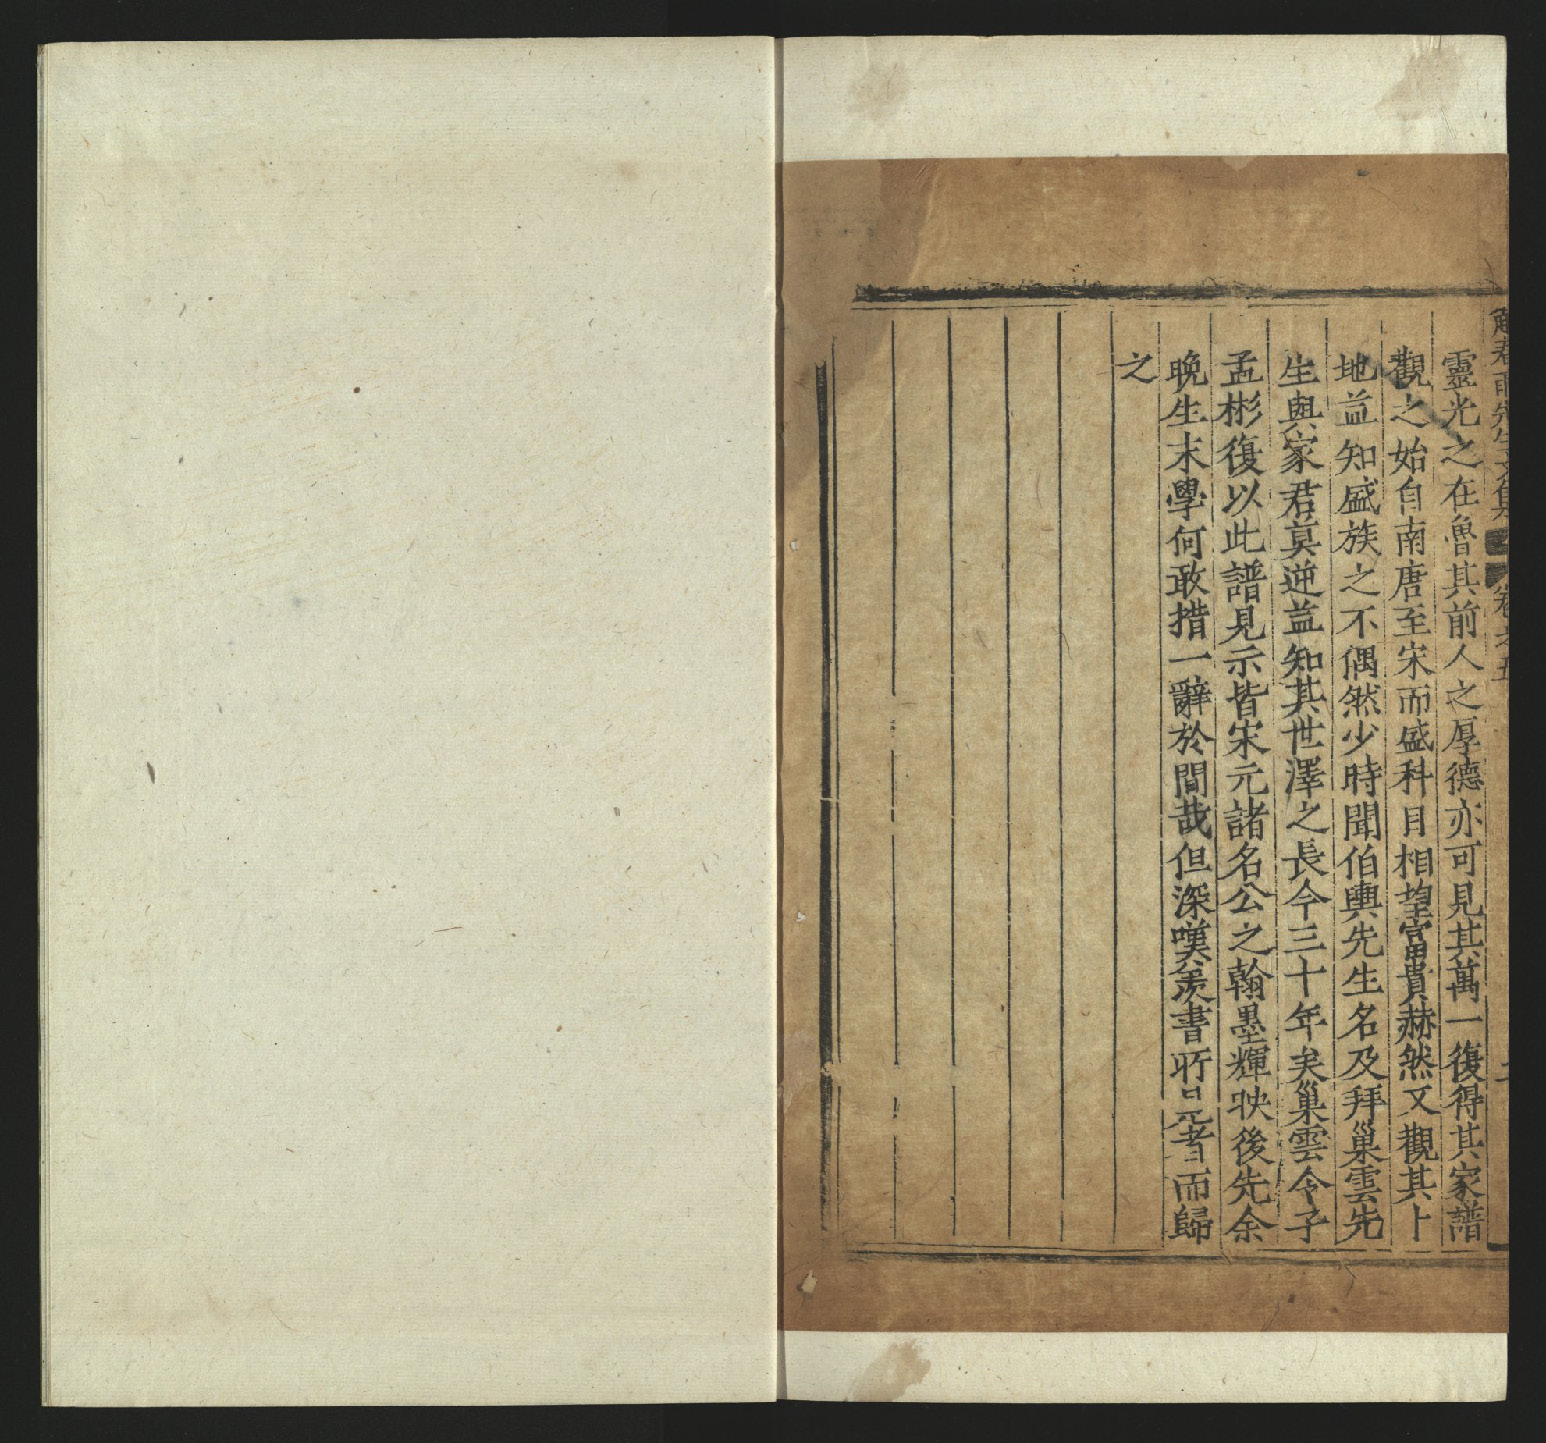 解春雨先生文集 卷之五
靈光之在魯其前人之厚德亦可見其萬一復得其家譜
觀之始自南唐至宋而盛科目相望富貴赫然又觀其卜
地益知盛族之不偶然少時聞伯輿先生名及拜巢雲先
生與家君莫逆益知其世澤之長今三十年矣巢雲令子
孟彬復以此譜見示皆宋元諸名公之翰墨輝映後先余
晚生末學何敢措一辭於間哉但深嘆羨書所見者而歸
之